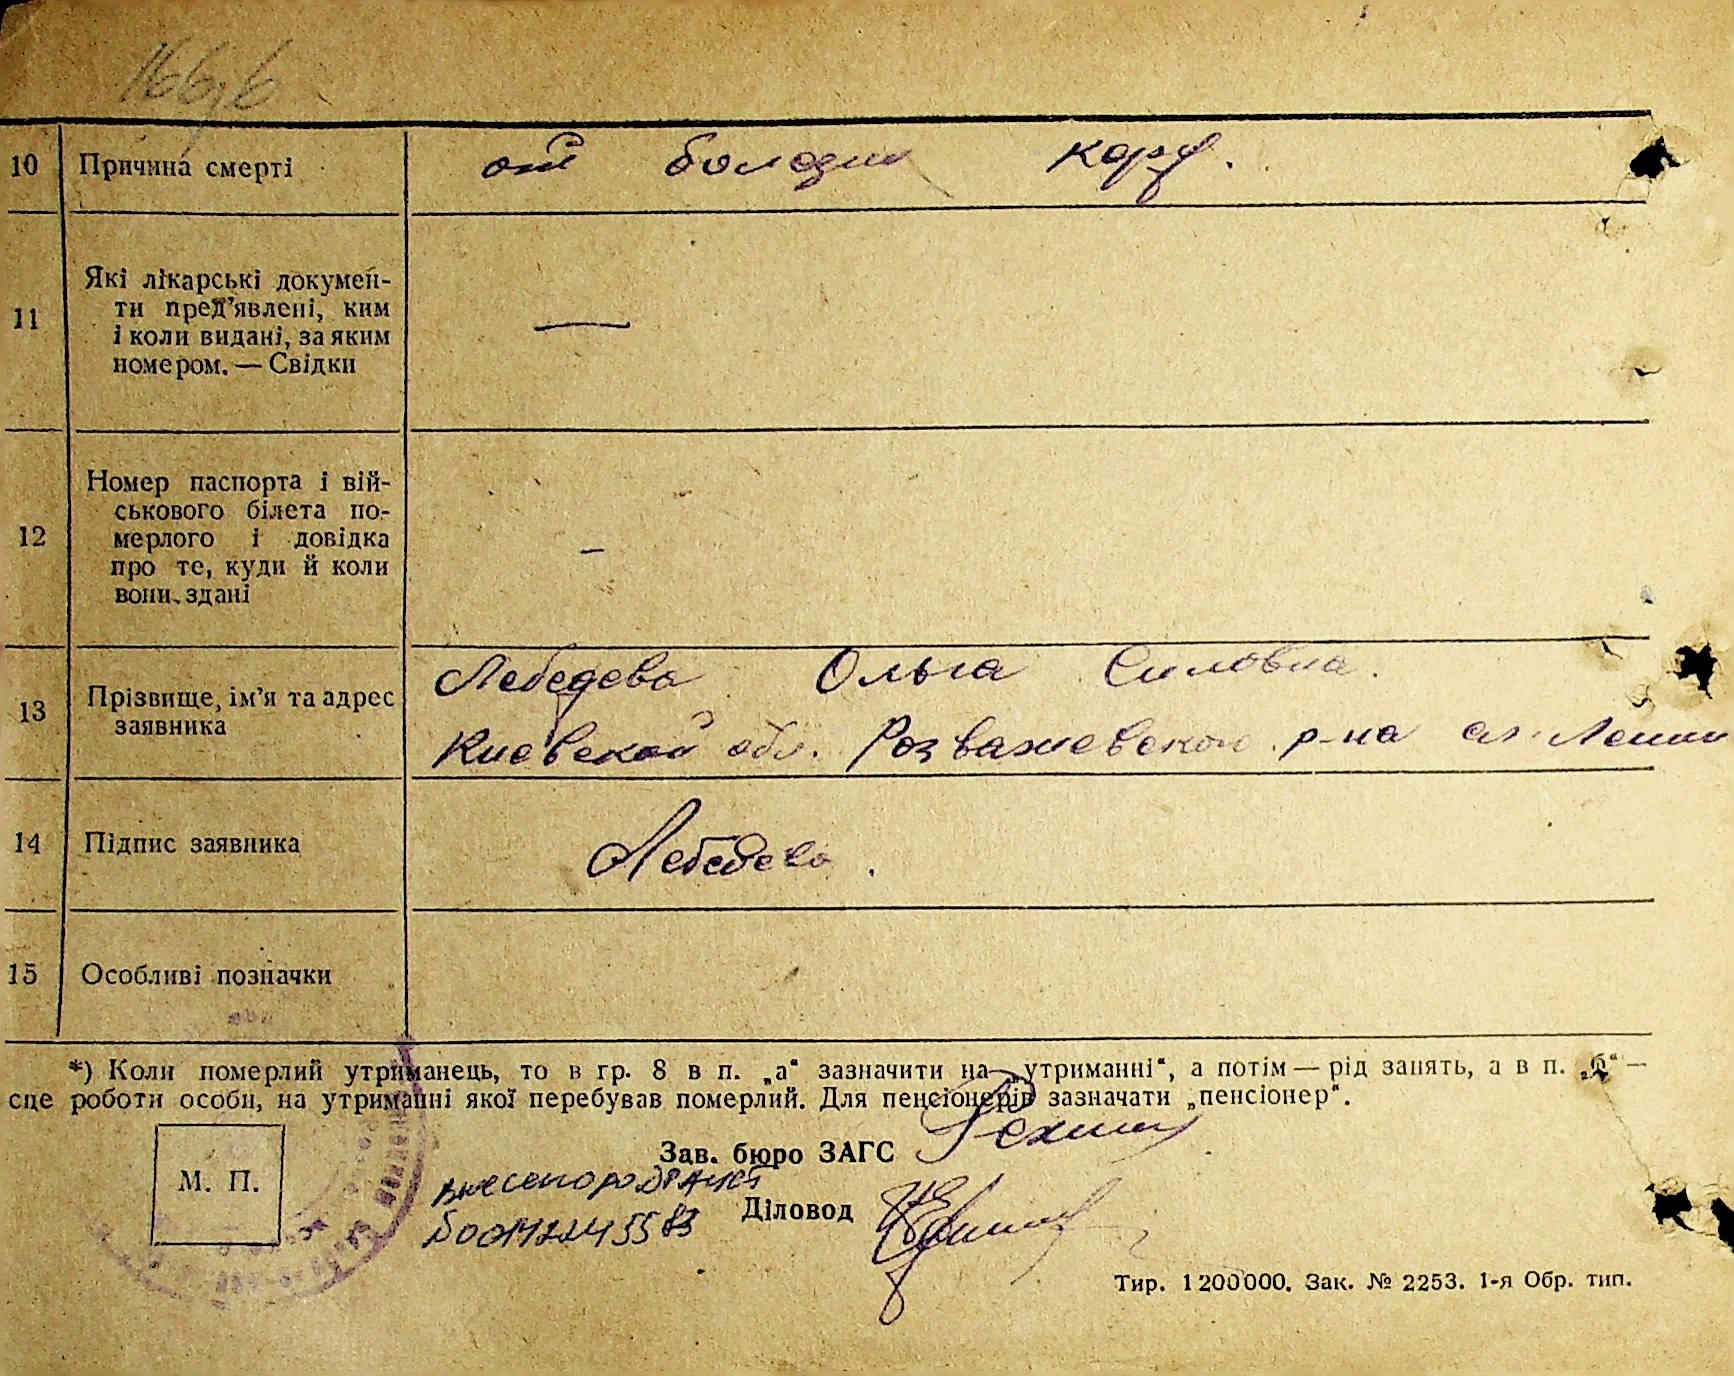 10 Причина смерті от болезни кори.
11 Які лікарські докумен-
ти пред’явлені, ким
і коли видані, за яким
номером. — Свідки —
12 Номер паспорта і вій-
ськового білета по-
мерлого і довідка
про те, куди й коли
вони здані –
13 Прізвище, ім’я та адрес
заявника
Лебедева Ольга Силовна.
Киевской обл. Розважевского р-на
14 Підпис заявника Лебедева.
15 Особливі позначки
*) Коли померлий утриманець, то в гр. 8 в п. „а“ зазначити на „утриманні“, а потім — рід занять, а в п. „б“ —
сце роботи особи, на утриманні якої перебував померлий. Для пенсіонерів зазначати „пенсіонер“.
Зав. бюро ЗАГС
М. П.
Діловод
001472245583
Тир. 1 200 000. Зак. № 2253. 1-я Обр. тип.